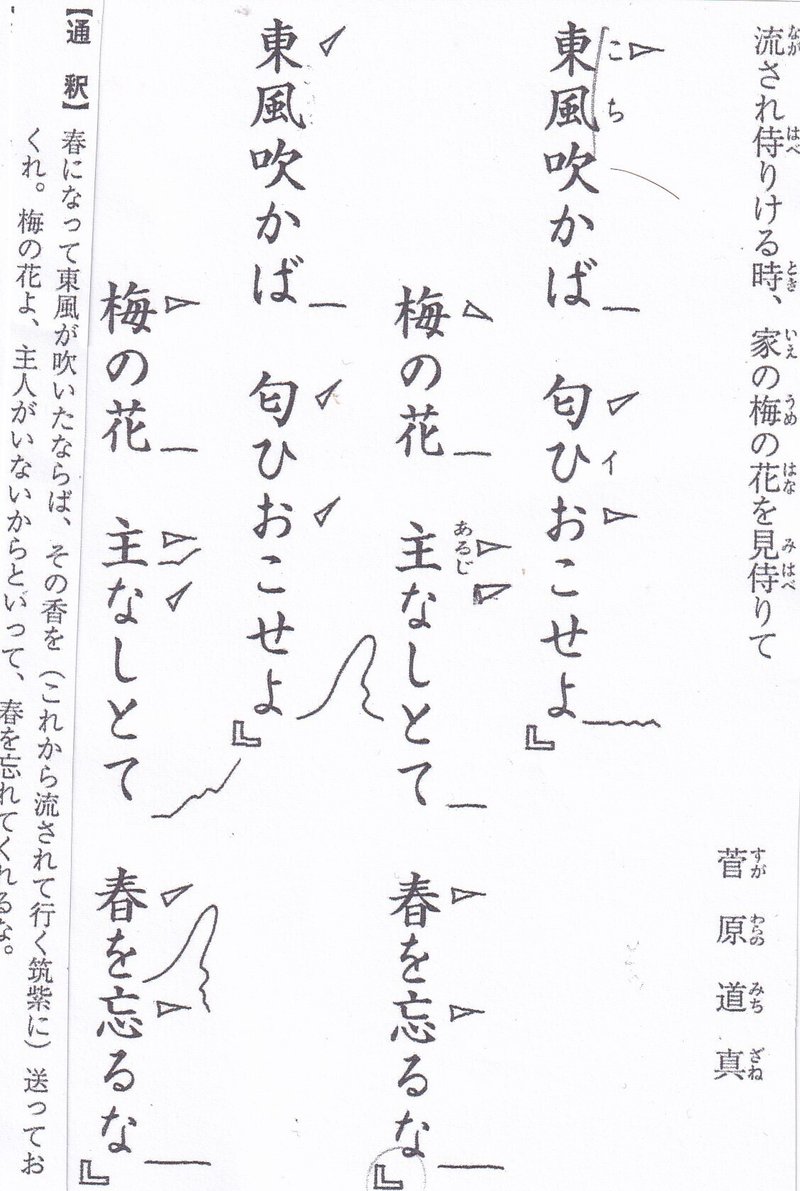 流され侍りける時、家の梅の花を見侍りて
菅原道真
東風吹かば 匂ひおこせよ』
梅の花 主なしとて 春を忘るな』
東風吹かば 匂ひおこせよ』
梅の花 主なしとて 春を忘るな』
【通釈】 春になって東風が吹いたならば、その香を(これから流されて行く筑紫に)送ってお
くれ。梅の花よ、主人がいないからといって、春を忘れてくれるな。